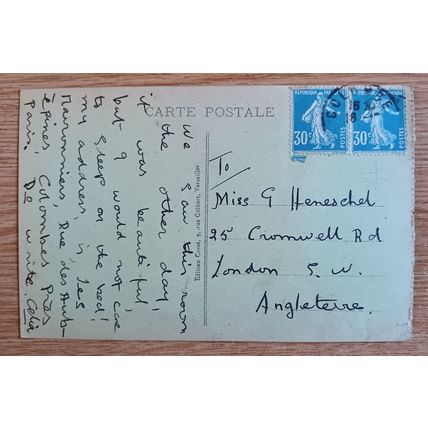 CARTE POSTALE
We saw this room
the other day,
it was beautiful,
but I would not care
to sleep on the bed!
my address is Les
Marronniers, Rue des Aub-
épines Colombes Près
Paris. Do write. Celia
Edition Cossé, 9, rue Colbert, Versailles
REPUBLIQUE FRANÇAISE
30c
POSTES
REPUBLIQUE FRANÇAISE
30c
POSTES
To/
Miss G Heneschel
25 Cromwell Rd
London S.W.
Angleterre.